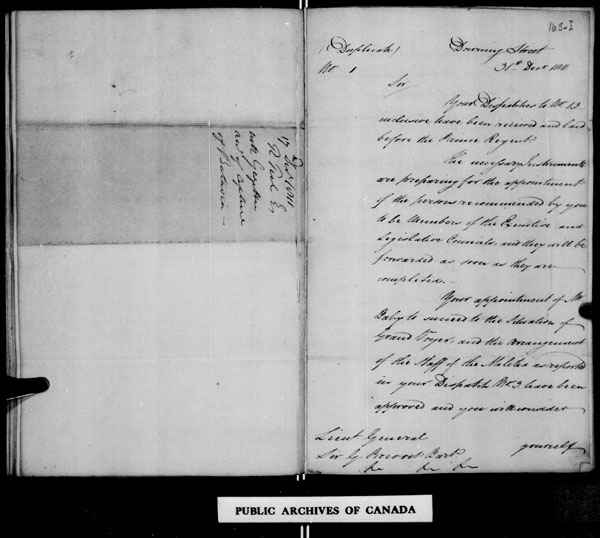 17 Decr 1811
R. Peel Es
with Gazette
acct of Capture
of Batavia —
163-I
(Duplicate) Downing Street
No. 1 31st Decr 1811.
Sir
Your Dispatches to No. 13
inclusive have been received and laid
before the Prince Regent.
The necessary Instruments
are preparing for the appointment
of the persons recommended by you
to be Members of the Executive and
Legislative Councils, and they will be
forwarded as soon as they are
completed. —
Your appointment of Mr
Baby to succeed to the Situation of
Grand Voyer, and the arrangement
of the Staff of the Militia as reported
in your Dispatch No. 3 have been
approved and you will consider
yourself
Lieut General
Sir G. Prevost Bart
&c &c &c
PUBLIC ARCHIVES OF CANADA